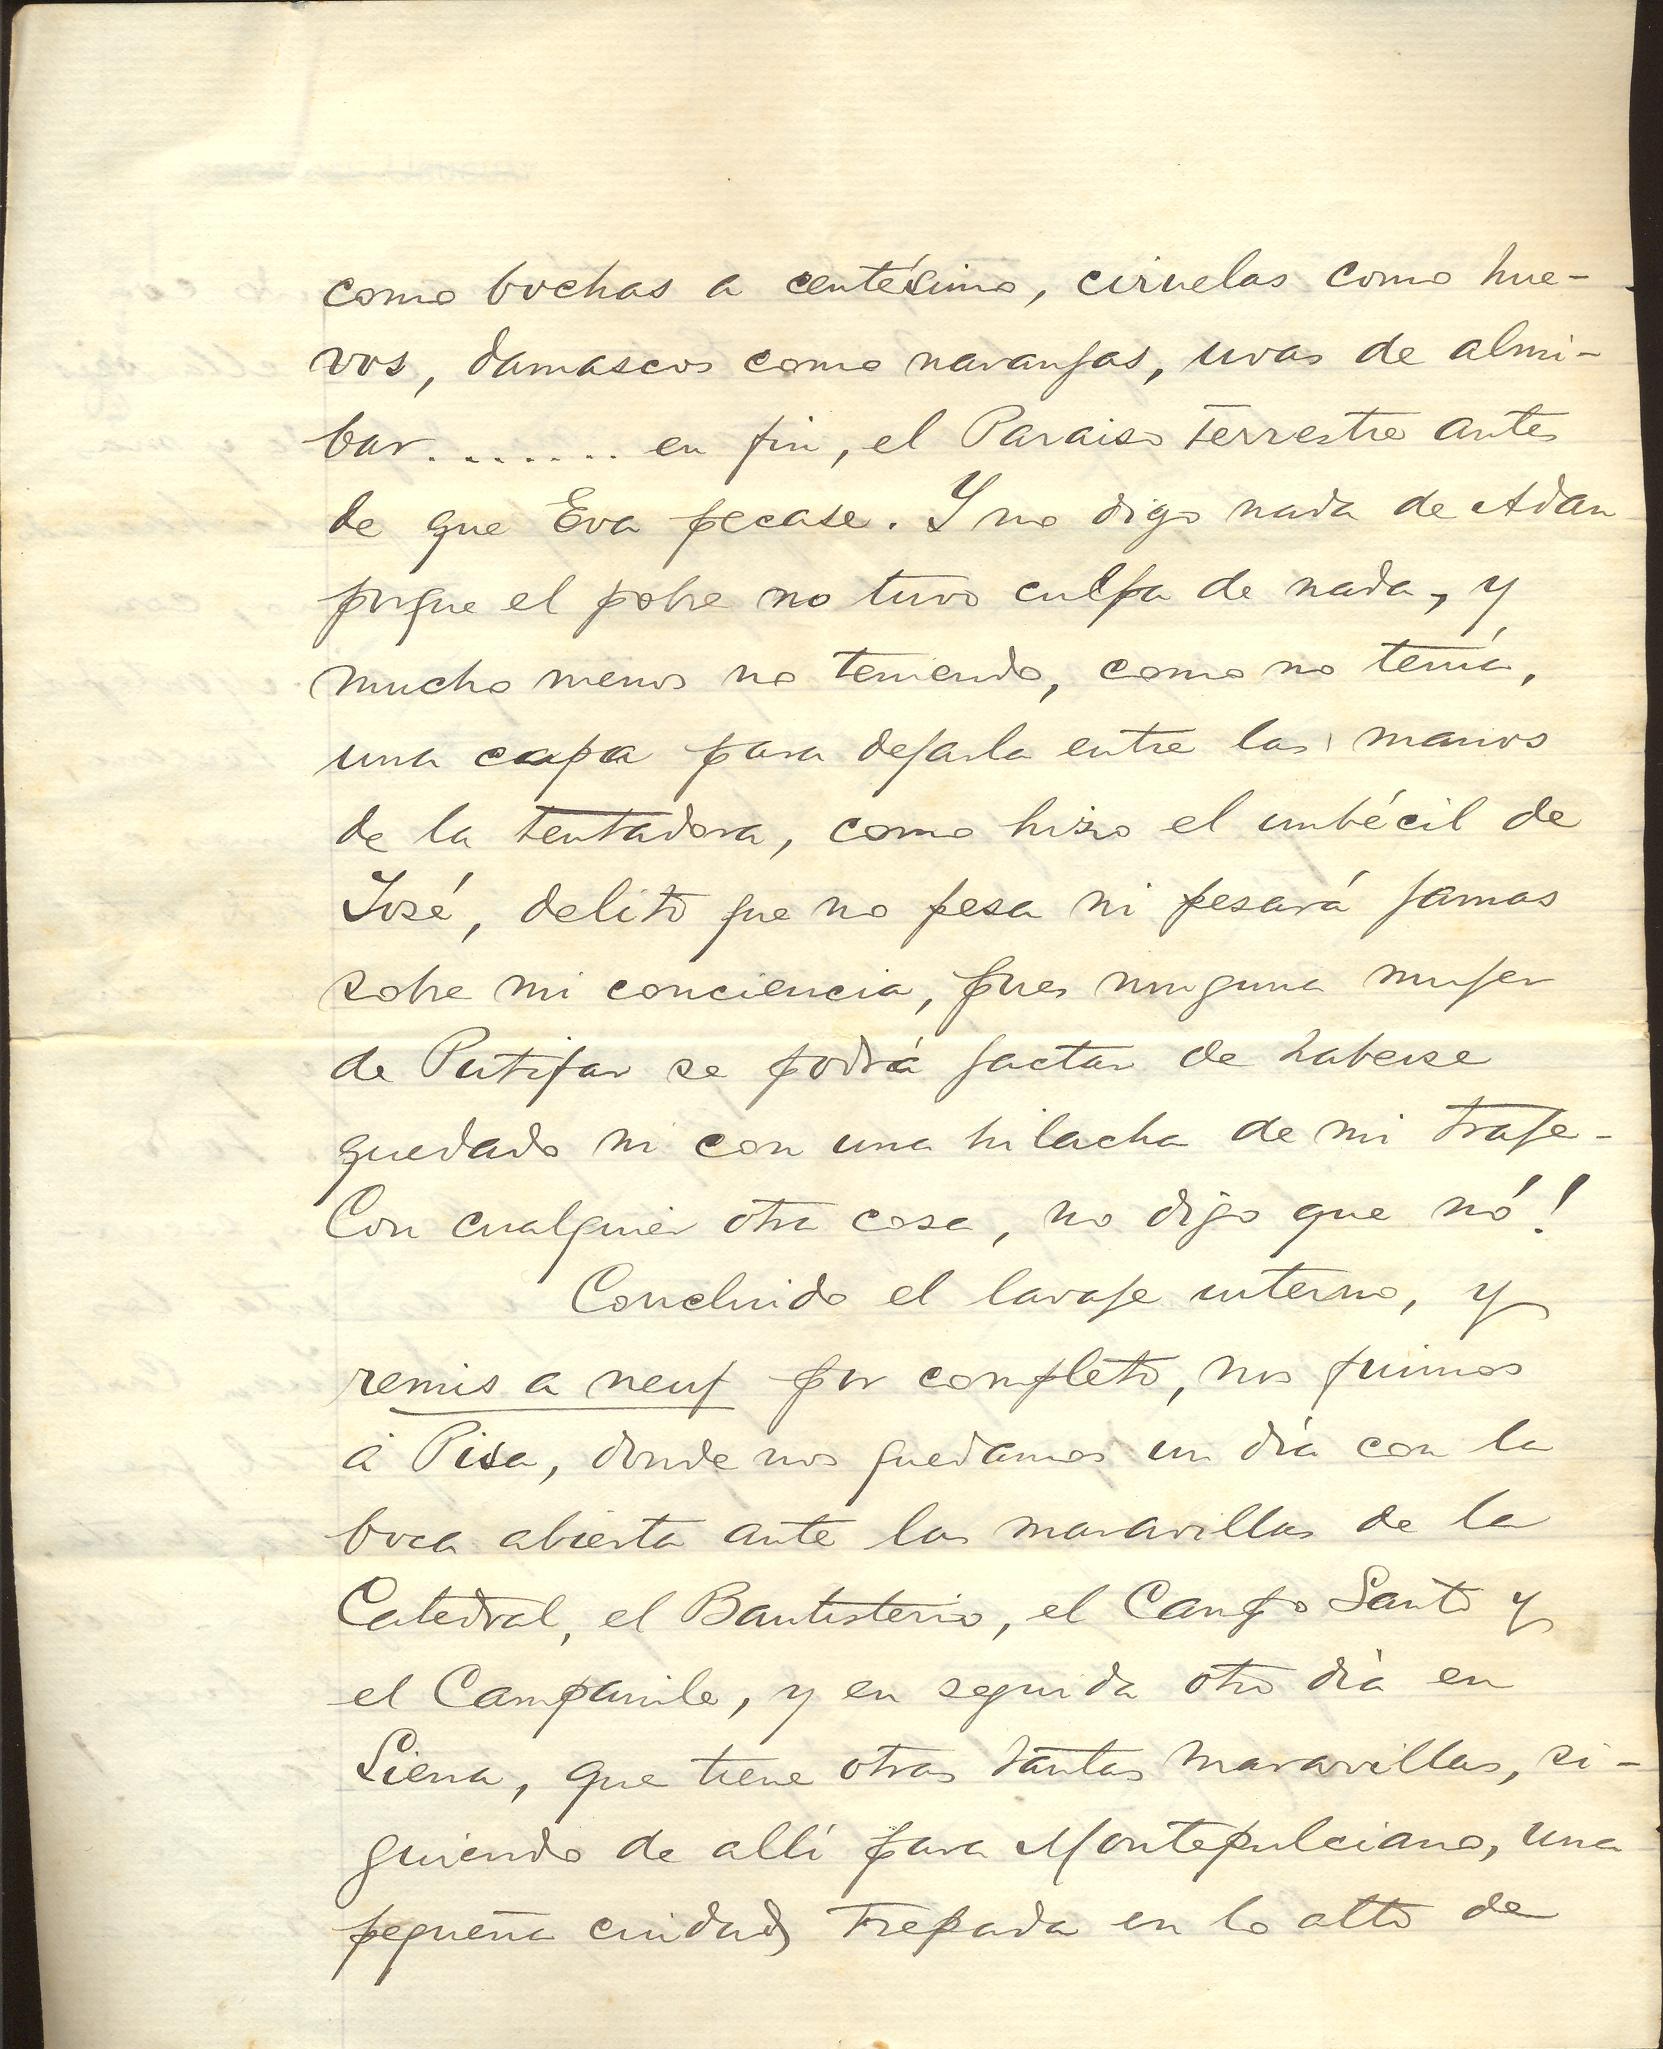 como bochas a centésimo, ciruelas como hue-
vos, damascos como naranjas, uvas de almi-
bar........ en fin, el Paraiso Terrestre antes
de que Eva pecase. Y no digo nada de Adan
porque el pobre no tuvo culpa de nada, y
mucho menos no teniendo, como no tenía,
una capa para dejarla entre las manos
de la tentadora, como hizo el imbécil de
José, delito que no pesa ni pesará jamas
sobre mi conciencia, pues ninguna mujer
de Putifar se podrá jactar de haberse
quedado ni con una hilacha de mi traje.
Con cualquier otra cosa, no digo que nó!
Concluido el lavaje interno, y
remis a neuf por completo, nos fuimos
á Pisa, donde nos quedamos un día con la
boca abierta ante las maravillas de la
Catedral, el Bautisterio, el Campo Santo y
el Campanile, y en seguida otro día en
Siena, que tiene otras tantas maravillas, si-
guiendo de allí para Montepulciano, una
pequeña ciudad, trepada en lo alto de